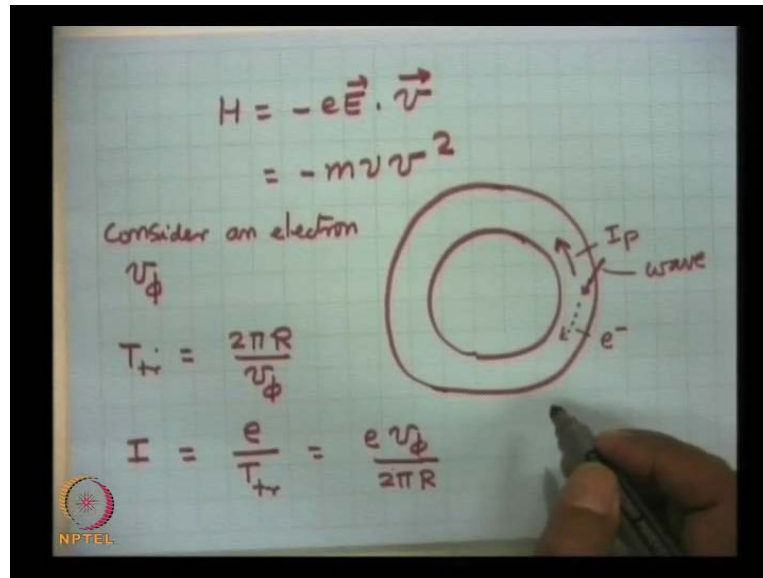 H = - e E⃗ . v⃗
= - m ν v²
Consider an electron
v_ϕ
T_tr = 2πR / v_ϕ
I = e / T_tr = e v_ϕ / 2πR
I_P
wave
e⁻
NPTEL